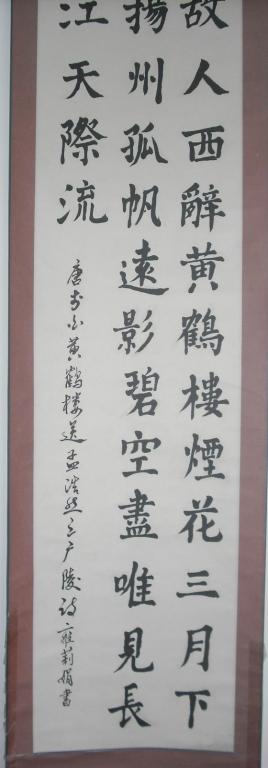 故人西辭黄鶴樓煙花三月下
揚州孤帆遠影碧空盡唯見長
江天際流
唐李白黄鶴楼送孟浩然之广陵诗 雍莉娟書